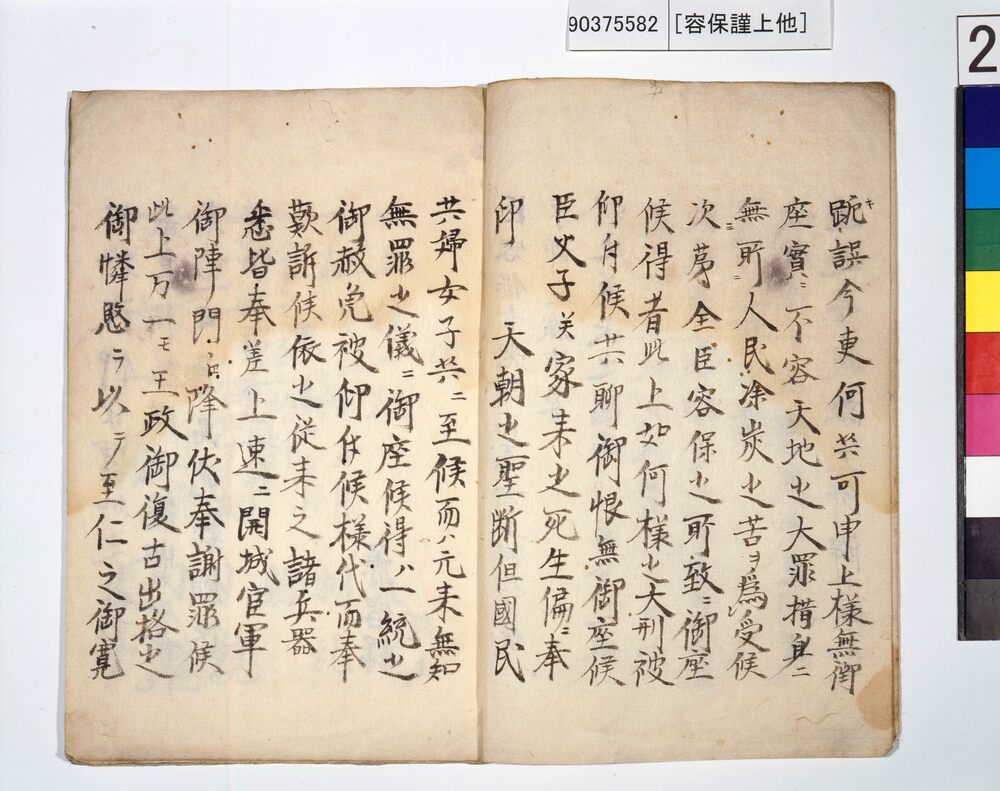 90375582 [容保謹上他]
2
跪誤今更何共可申上様無御
座實ニ不容天地之大罪措身ニ
無所ニ人民塗炭之苦ヲ為受候
次第全臣容保之所致ニ御座
候得者此上如何様之天刑被
仰付候共聊御恨無御座候
臣父子并家来之死生偏ニ奉
仰　天朝之聖断但國民
共婦女子共ニ至候而ハ元来無知
無罪之儀ニ御座候得ハ一統之
御赦免被仰付候様代而奉
歎訴候依之従来之諸兵器
悉皆奉差上速ニ開城官軍
御陣門江降伏奉謝罪候
此上万一モ王政御復古出格之
御憐愍ヲ以テ至仁之御寛